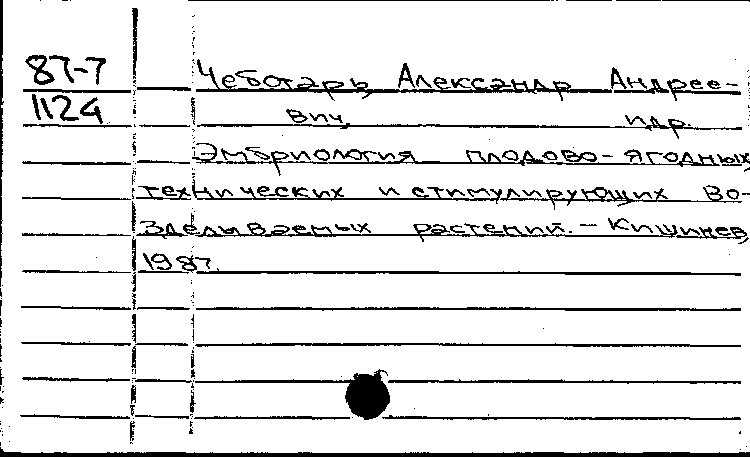 87-7 Чеботарь, Александр Андрее-
1124 вич, и др.
Эмбриология плодово-ягодных,
технических и стимулирующих во-
зделываемых растений. - Кишинев,
1987.